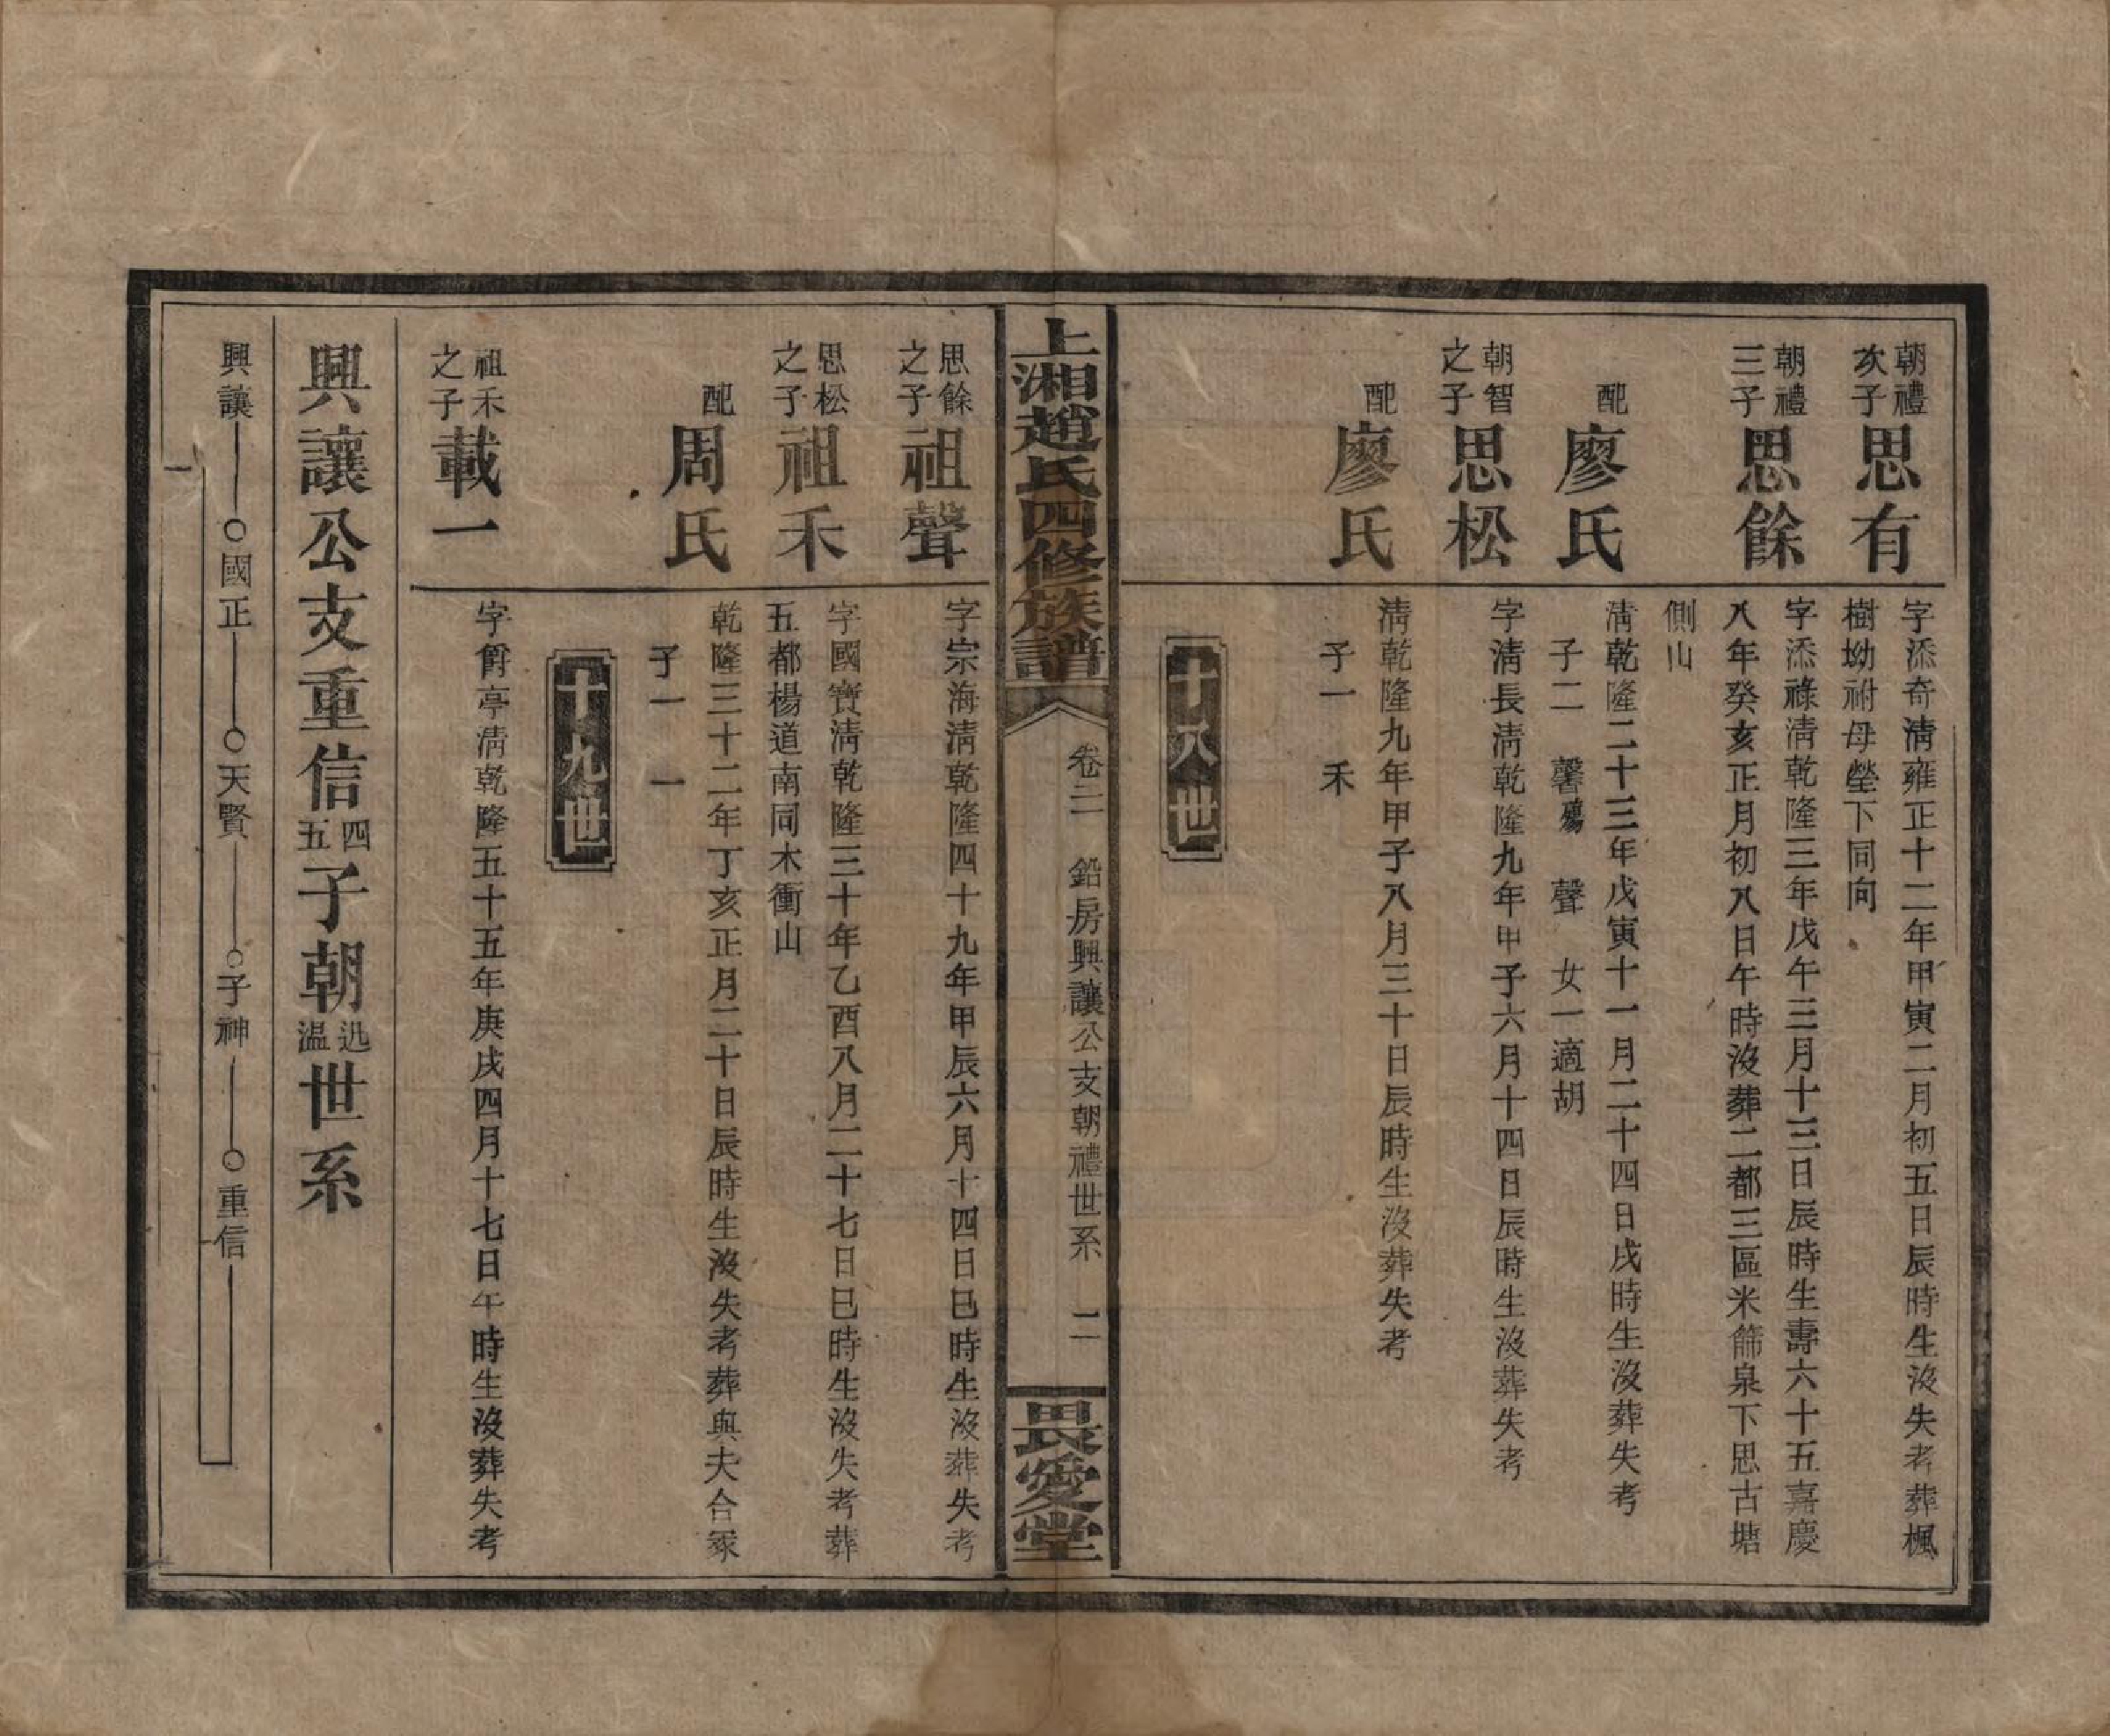 朝禮次子 思有
字添奇清雍正十二年甲寅二月初五日辰時生沒失考葬楓
樹坳祔母塋下同向
朝禮三子 思餘
字添祿清乾隆三年戊午三月十三日辰時生壽六十五嘉慶
八年癸亥正月初八日午時沒葬二都三區米篩泉下思古塘
側山
配 廖氏
清乾隆二十三年戊寅十一月二十四日戌時生沒葬失考
子二 馨殤 聲 女一適胡
朝智之子 思松
字清長清乾隆九年甲子六月十四日辰時生沒葬失考
配 廖氏
清乾隆九年甲子八月三十日辰時生沒葬失考
子一 禾
十八世
上湘趙氏四修族譜
卷二 鉛房興讓公支朝禮世系 二
畏愛堂
思餘之子 祖聲
字宗海清乾隆四十九年甲辰六月十四日巳時生沒葬失考
思松之子 祖禾
字國寶清乾隆三十年乙酉八月二十七日巳時生沒失考葬
五都楊道南同木衝山
配 周氏
乾隆三十二年丁亥正月二十日辰時生沒失考葬與夫合冢
子一 一
十九世
祖禾之子 載一
字爵亭清乾隆五十五年庚戌四月十七日午時生沒葬失考
興讓公支重信四五子朝迅溫世系
興讓 國正 天賢 子神 重信